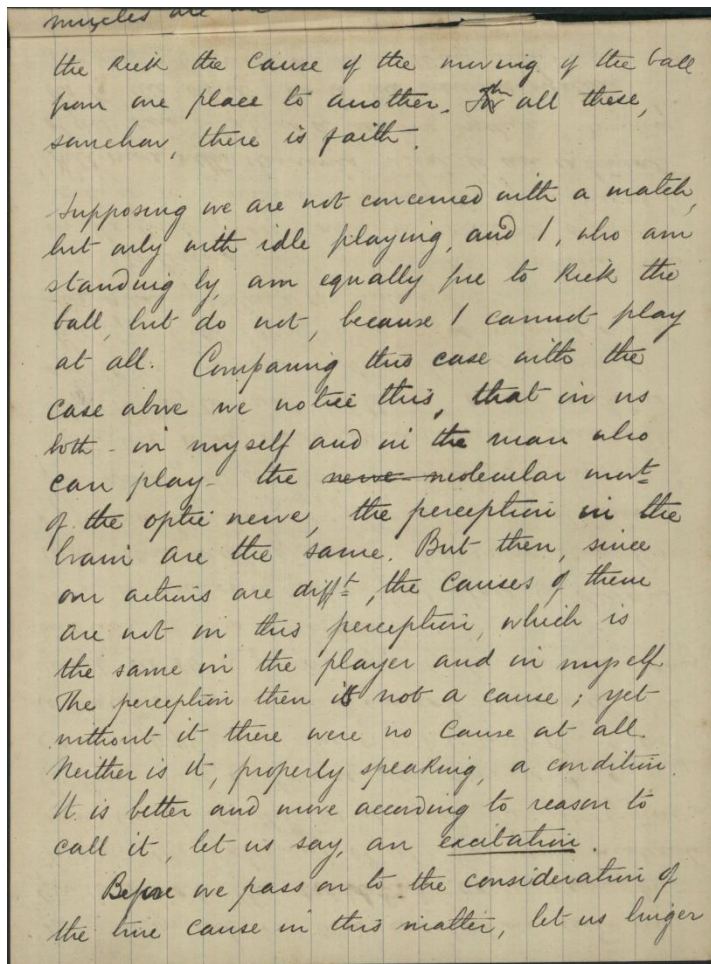 muscles are
the kick the cause of the moving of the ball
from one place to another. In all these,
somehow, there is faith.
Supposing we are not concerned with a match,
but only with idle playing, and I, who am
standing by, am equally free to kick the
ball, but do not, because I cannot play
at all. Comparing this case with the
case above we notice this, that in us
both - in myself and in the man who
can play - the nerve molecular movt
of the optic nerve, the perception in the
brain are the same. But then, since
our actions are difft, the causes of them
are not in this perception, which is
the same in the player and in myself
The perception then is not a cause; yet
without it there were no cause at all.
Neither is it, properly speaking, a condition.
It is better and more according to reason to
call it, let us say, an excitation.
Before we pass on to the consideration of
the true cause in this matter, let us linger